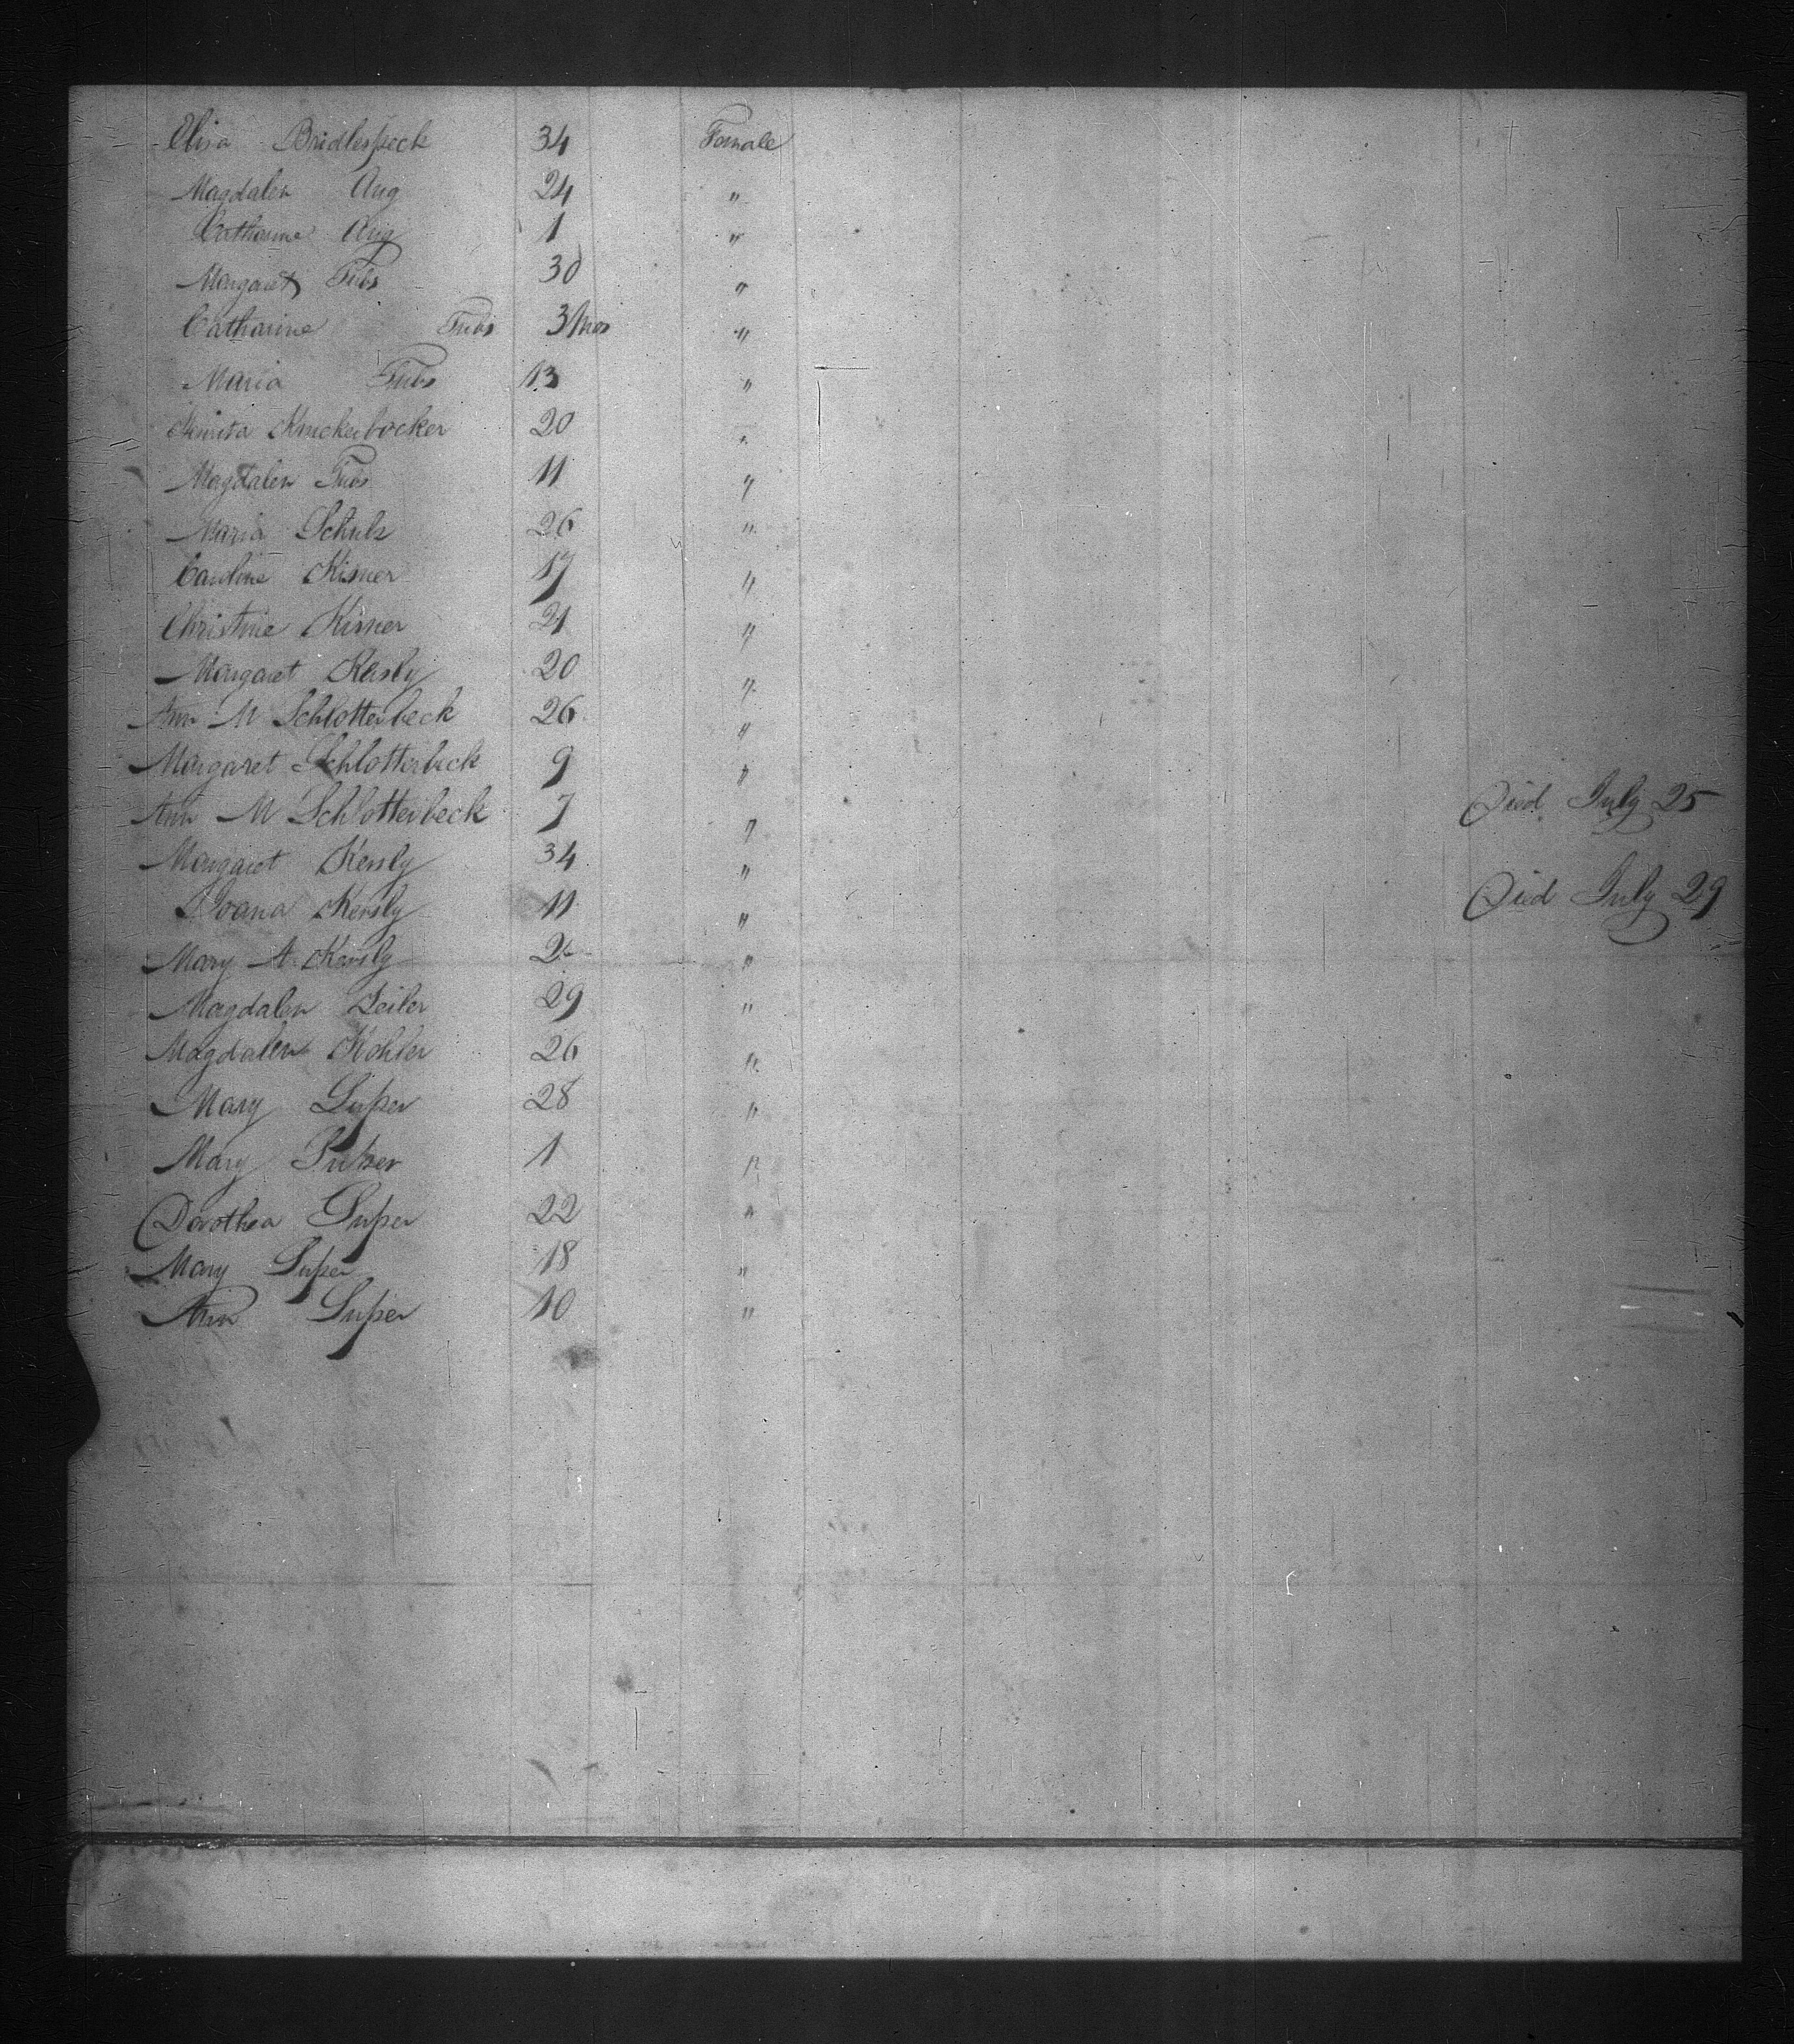 Elisa Bridlespeck 34 Female
Magdalen Aug 24 "
Catharine Aug 1 "
Margaret Fubs 30 "
Catharine Fubs 3 Mos "
Maria Fubs 13 "
Knickerbocker 20 "
Magdalen Fubs 11 "
Maria Schulz 26 "
Caroline Kisner 17 "
Christine Kisner 21 "
Margaret Kersly 20 "
Ann M Schlotterbeck 26 "
Margaret Schlotterbeck 9 "
Ann M Schlotterbeck 7 " Died July 25
Margaret Kersly 34 "
Kersly 11 " Died July 29
Mary A. Kersly 2 "
Magdalen Seiler 29 "
Magdalen Kohler 26 "
Mary Super 28 "
Mary Super 1 "
Dorothea Super 22 "
Mary Super 18 "
Ann Super 10 "